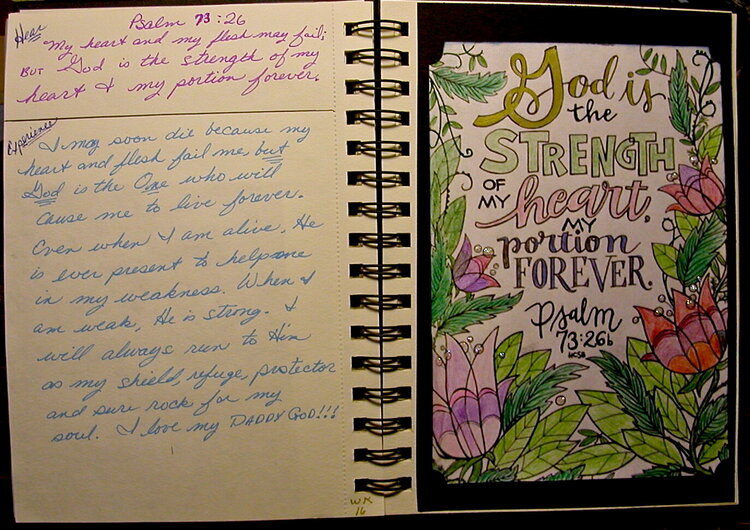 Hear
Psalm 73:26
My heart and my flesh may fail;
BUT God is the strength of my
heart & my portion forever.
Experience
I may soon die because my
heart and flesh fail me, but
God is the One who will
cause me to live forever.
Even when I am alive, He
is ever present to help me
in my weakness. When I
am weak, He is strong. I
will always run to Him
as my shield, refuge, protector
and sure rock for my
soul. I love my DADDY GOD!!!
WK
16
God is
the
STRENGTH
OF
MY heart,
MY
portion
FOREVER.
Psalm
73:26b
HCSB